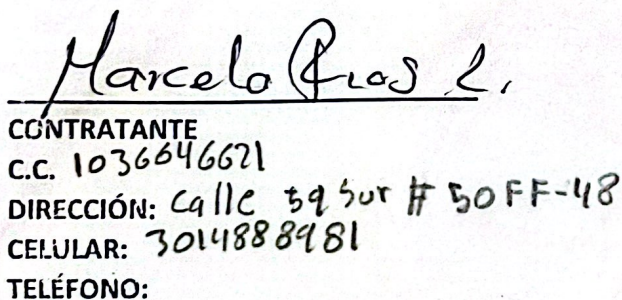 Marcela Rios L.
CONTRATANTE
C.C. 1036646621
DIRECCIÓN: Calle 59 Sur # 50FF-48
CELULAR: 3014888981
TELÉFONO: